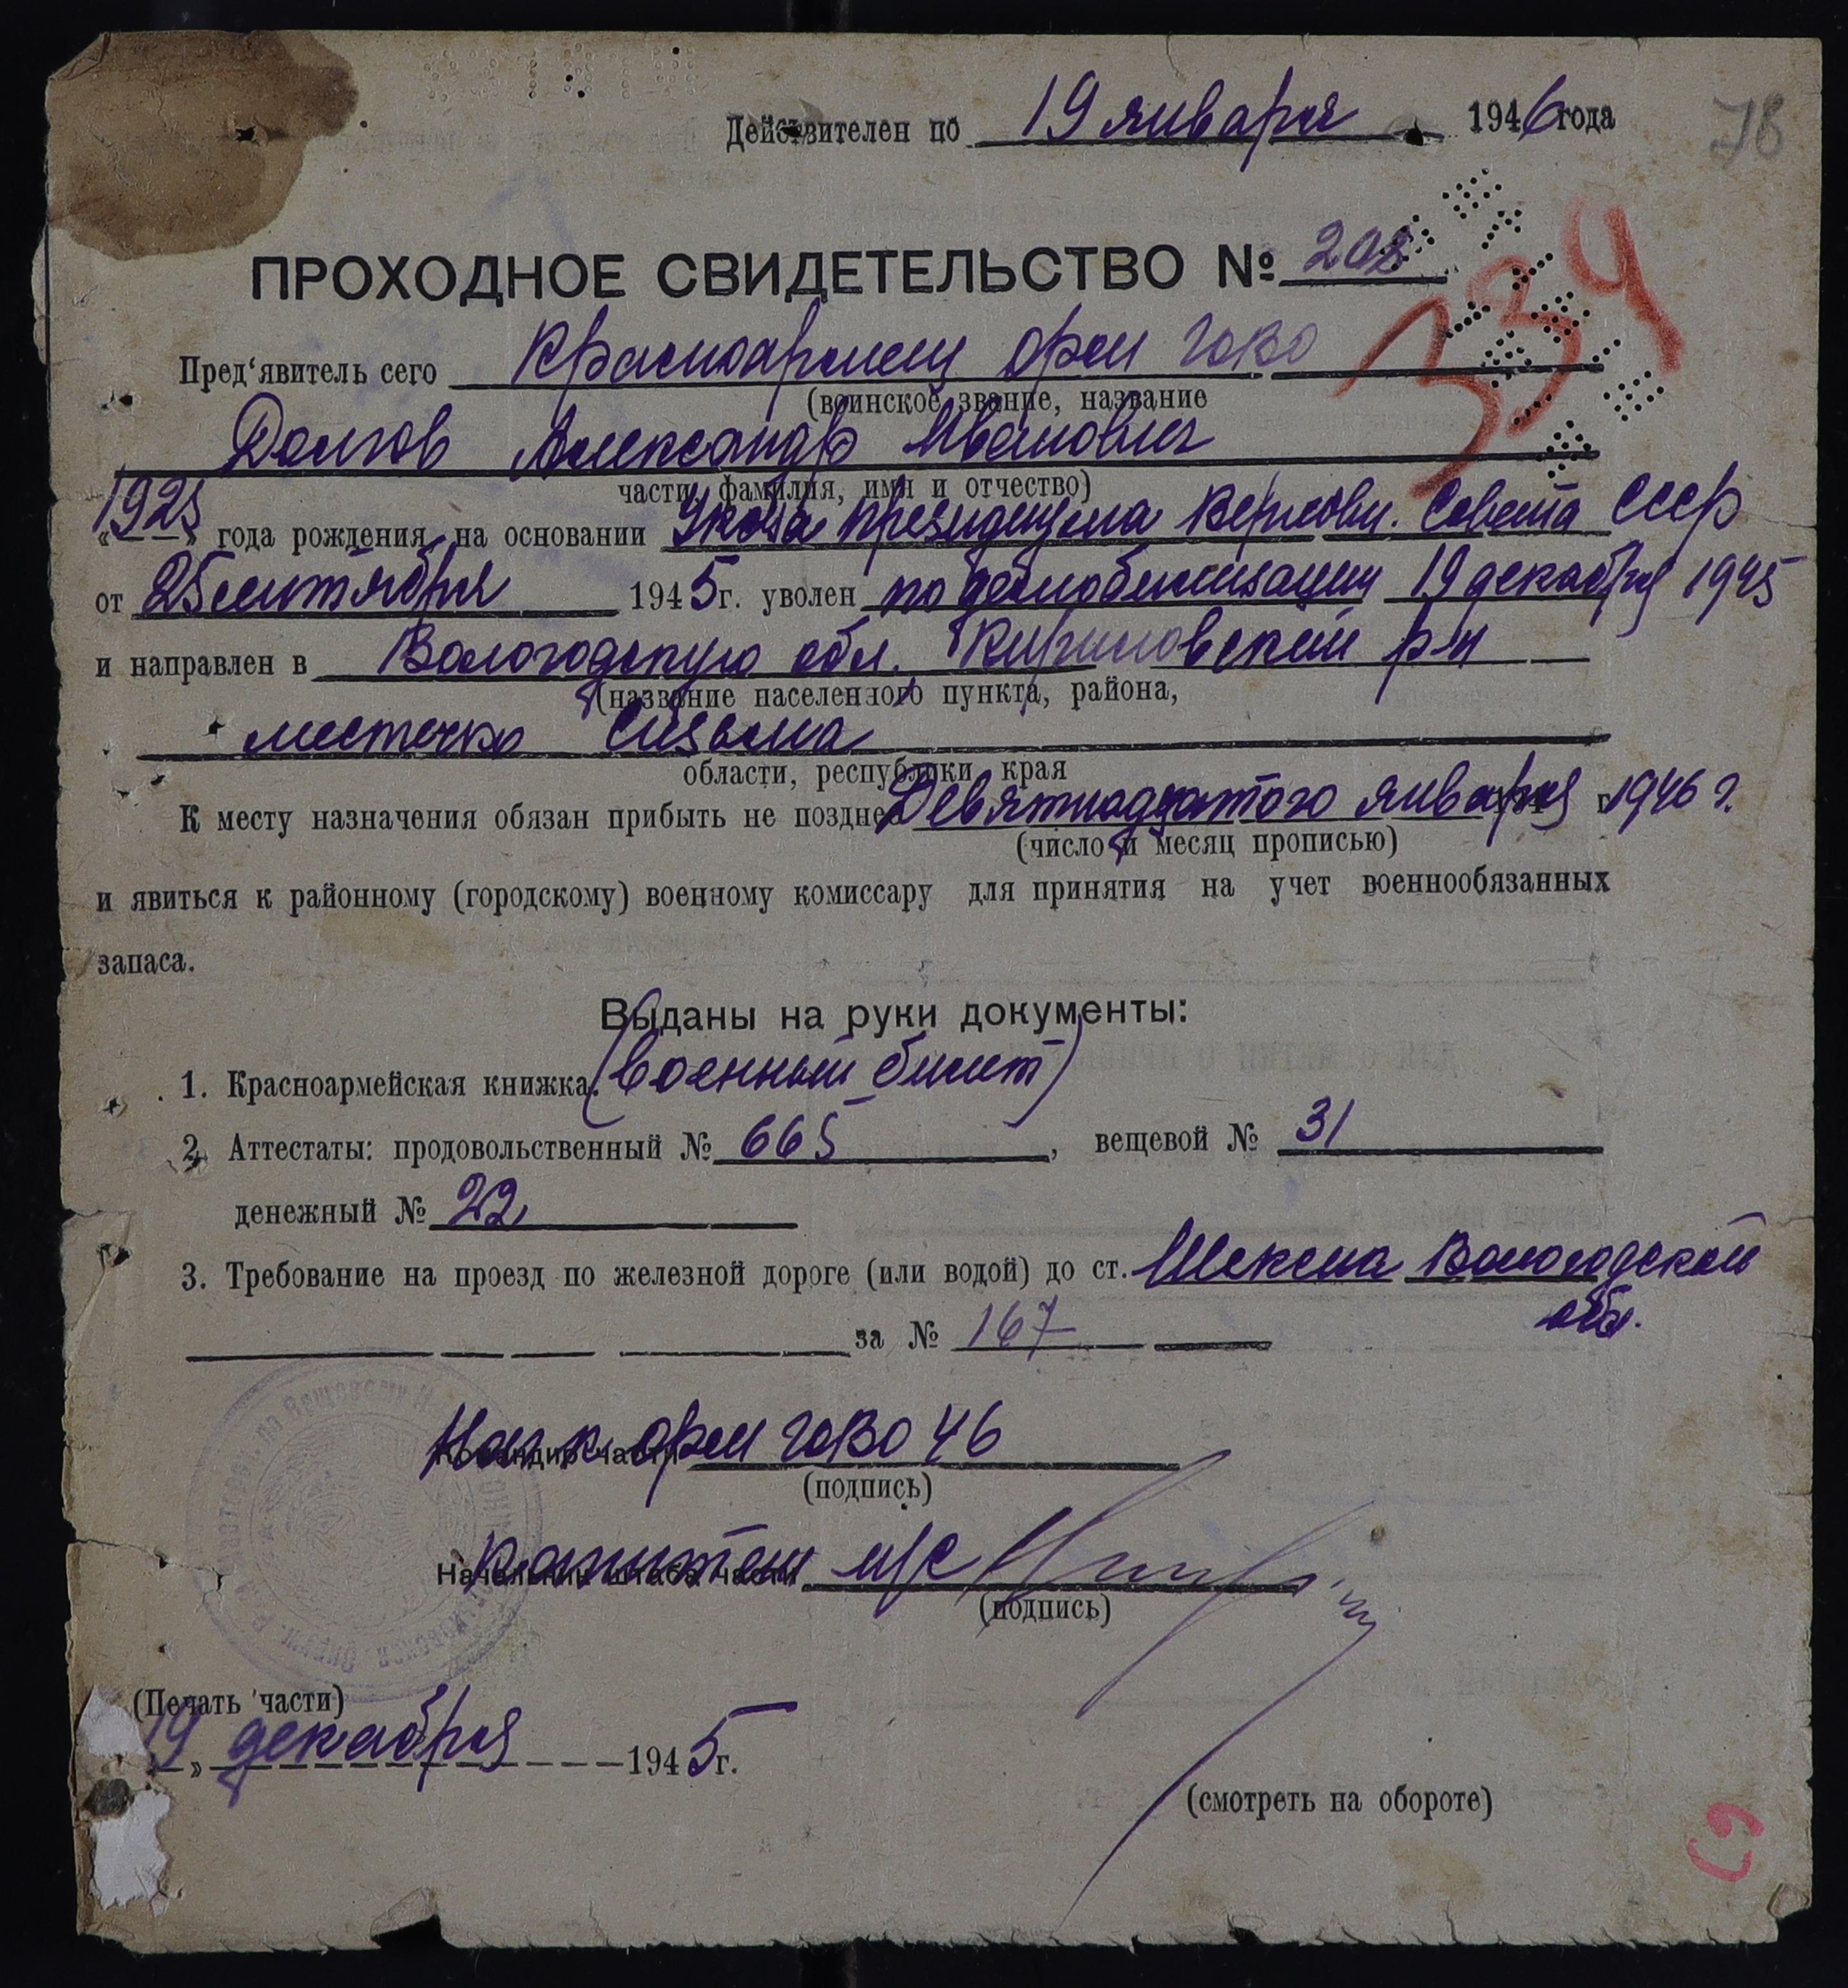 78
Действителен по 19 января 1946 года
334
ПРОХОДНОЕ СВИДЕТЕЛЬСТВО № 208
Пред'явитель сего Красноармеец орм ГОВО
(воинское звание, название
Долгов Александр Иванович
части, фамилия, имя и отчество)
«1925» года рождения, на основании Указа Президиума Верховн. Совета СССР
от 25 сентября 1945 г. уволен по демобилизации 19 декабря 1945
и направлен в Вологодскую обл. Кирилловский р-н
(название населенного пункта, района,
местечко Сизьма
области, республики, края
К месту назначения обязан прибыть не позднее Девятнадцатого января 1946 г.
(число и месяц прописью)
и явиться к районному (городскому) военному комиссару для принятия на учет военнообязанных
запаса.
Выданы на руки документы:
1. Красноармейская книжка. (военный билет)
2. Аттестаты: продовольственный № 665, вещевой № 31
денежный № 22
3. Требование на проезд по железной дороге (или водой) до ст. Шексна Вологодской
обл.
за № 167
Командир части орм ГОВО 46
(подпись)
Начальник штаба части капитан м/с
(подпись)
(Печать части)
19 » декабря 1945 г.
(смотреть на обороте)